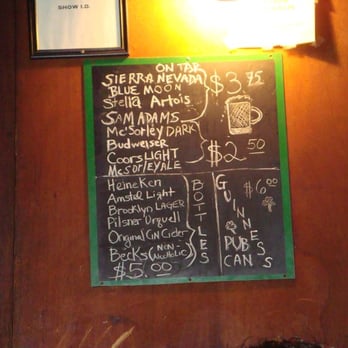 SHOW I.D.
ON TAP
SIERRA NEVADA
BLUE MOON
Stella Artois
$3.75
SAM ADAMS
McSorley DARK
Budweiser
Coors LIGHT
McSorley ALE
$2.50
Heineken
Amstel Light
Brooklyn LAGER
Pilsner Urquell
Original Gin Cider
Becks (NON-Alcoholic)
$5.00
BOTTLES
GUINNESS
PUB CANS
$6.00